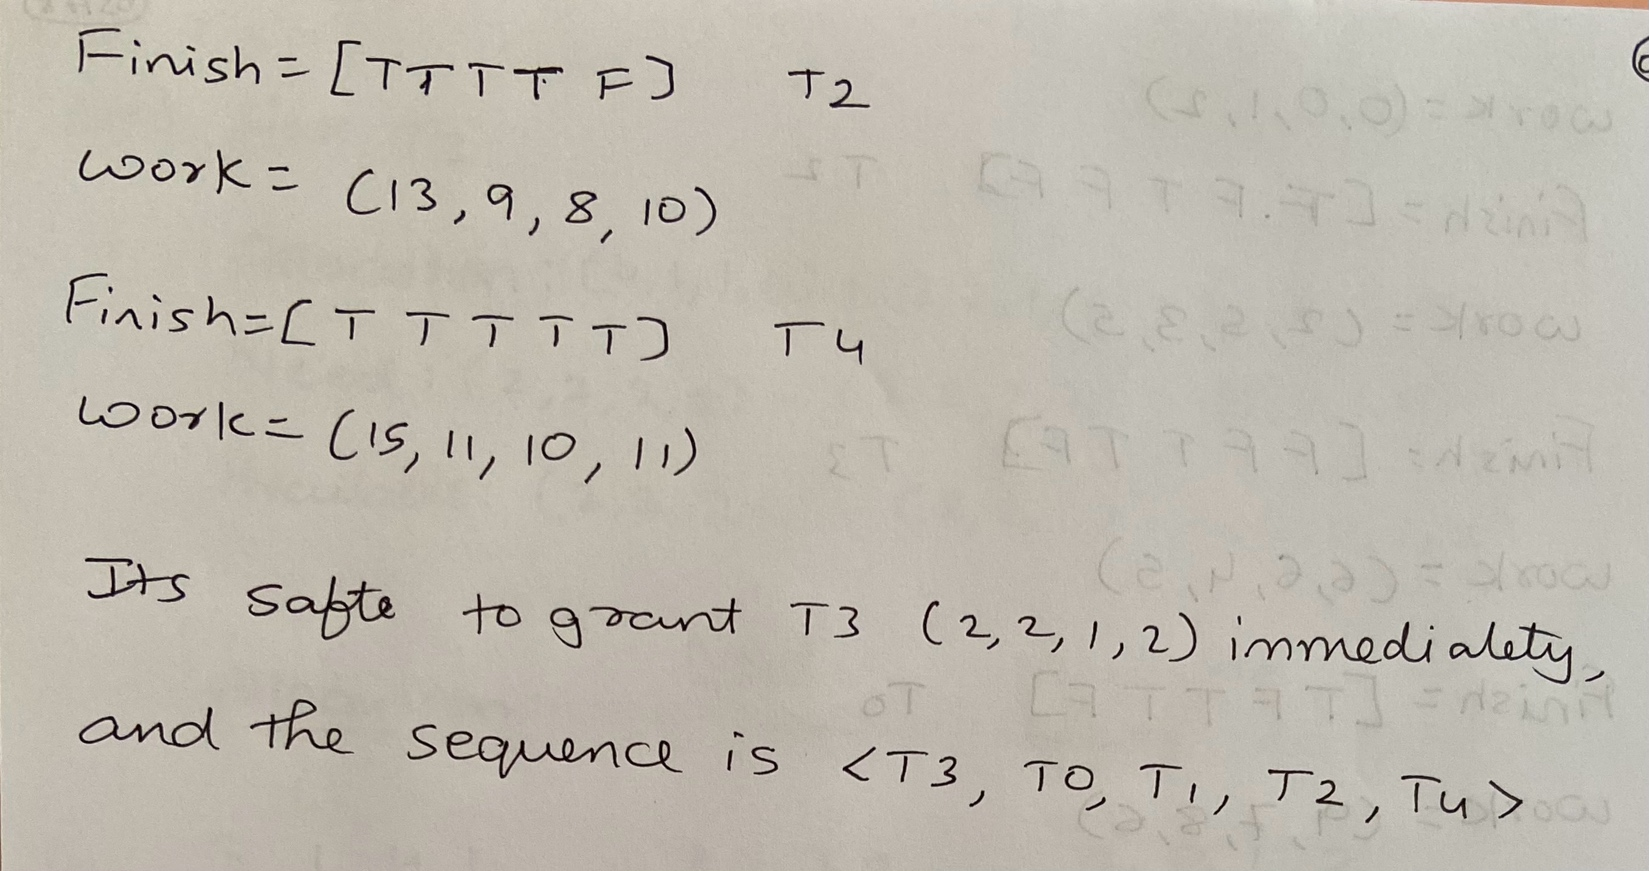 Finish = [T T T T F] T2
Work = (13, 9, 8, 10)
Finish = [T T T T T] T4
Work = (15, 11, 10, 11)
Its safte to grant T3 (2, 2, 1, 2) immedialety,
and the sequence is <T3, T0, T1, T2, T4>